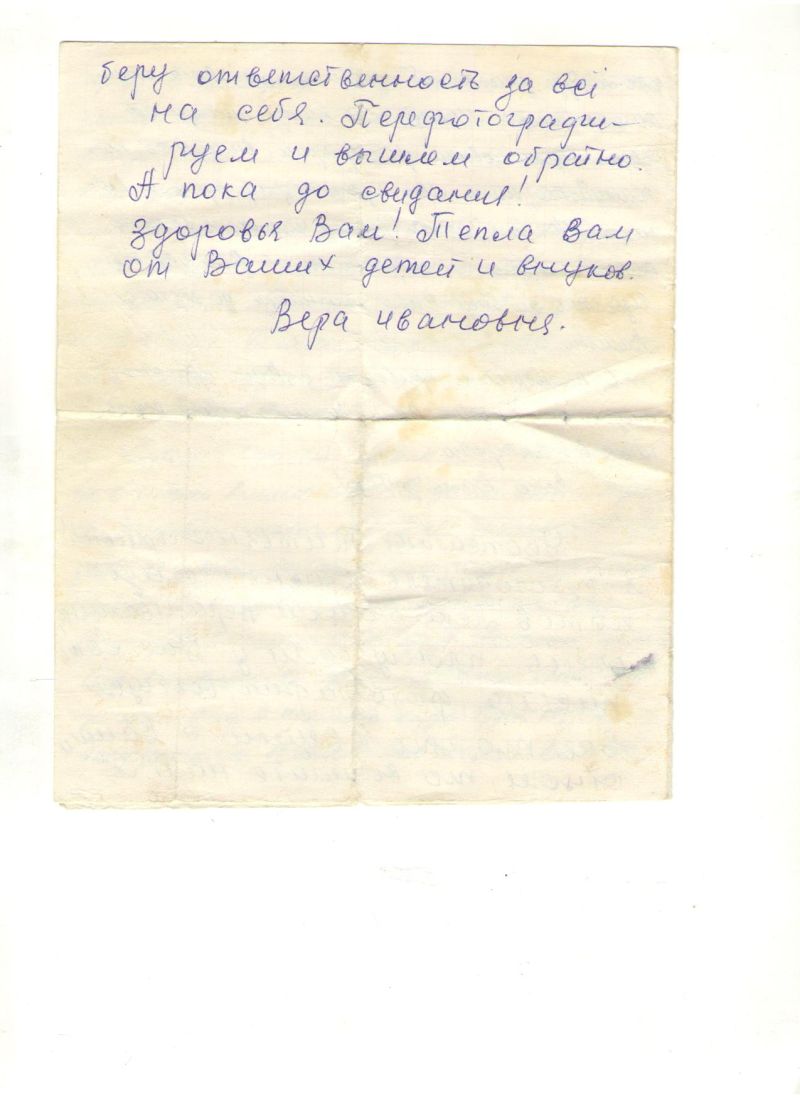 беру ответственность за всё
на себя. Перефотографи-
руем и вышлем обратно.
А пока до свидания!
Здоровья Вам! Тепла Вам
от Ваших детей и внуков.
Вера Ивановна.